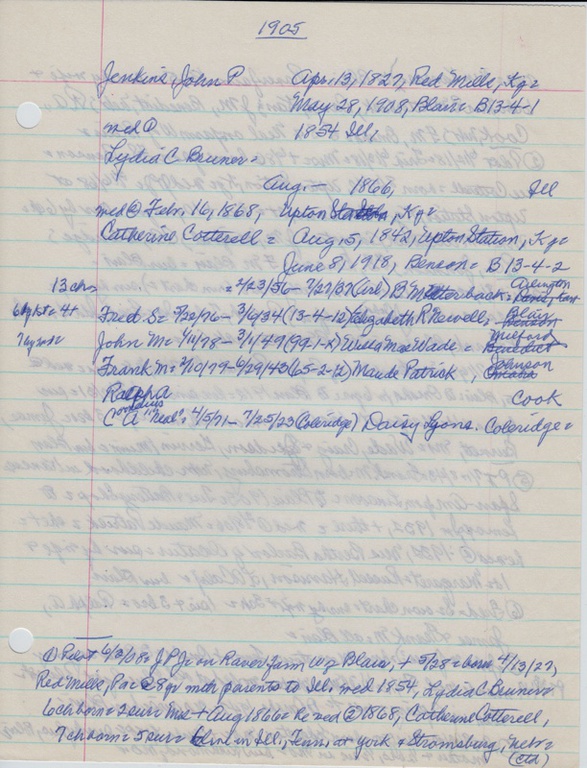 1905
Jenkins, John P Apr. 13, 1827, Red Mills, Ky=
May 28, 1908, Blair= B13-4-1
md ① 1854 Ill,
Lydia C Bruner=
Aug. — 1866, Ill
md② Febr. 16, 1868, Upton Station, Ky=
Catherine Cotterell= Aug. 5, 1842, Upton Station, Ky=
June 8, 1918, Benson= B 13-4-2
13 chs = 2/23/56 - 7/27/37 (Arl) B Arlington
Fred S= 5/22/76 - 3/6/34 (13-4-12) Elizabeth R Newell, Blair
John M= 1/11/78 - 3/1/49 (99-1-2) Willa Mae Wade= Milford
Frank M= 2/10/79 - 6/29/43 (65-2-2) Maude Patrick, Johnson
Ralph A Cook
Cornelius
C A "Neal"= 4/5/71 - 7/25/23 (Coleridge) Daisy Lyons. Coleridge=
① Pilot 6/3/08= J P J= on Raver farm W of Blair, + 5/28= born 4/13/27,
Red Mills, Pa= 8 yr with parents to Ill. md 1854, Lydia C Bruner=
6 ch born= 2 surv= Mrs + Aug 1866= Re md② 1868, Catherine Cotterell,
7 ch born= 5 surv= live in Ill., Tenn, at York + Stromsburg, Nebr=
(ctd)